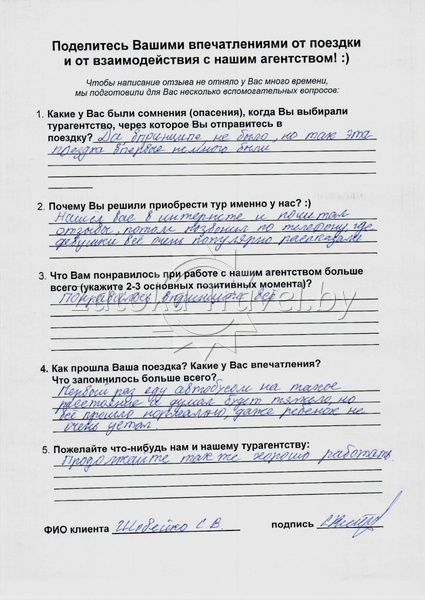 Поделитесь Вашими впечатлениями от поездки
и от взаимодействия с нашим агентством! :)
Чтобы написание отзыва не отняло у Вас много времени,
мы подготовили для Вас несколько вспомогательных вопросов:
1. Какие у Вас были сомнения (опасения), когда Вы выбирали
турагентство, через которое Вы отправитесь в
поездку? Да впринципе не было, но так эта
поездка впервые немного были
2. Почему Вы решили приобрести тур именно у нас? :)
Нашел вас в интернете и почитал
отзывы, потом позвонил по телефону, где
девушки всё очень популярно рассказали
3. Что Вам понравилось при работе с нашим агентством больше
всего (укажите 2-3 основных позитивных момента)?
Понравилось впринципе всё
4. Как прошла Ваша поездка? Какие у Вас впечатления?
Что запомнилось больше всего?
Первый раз еду автобусом на такое
расстояние и думал будет тяжело, но
всё прошло нормально, даже ребенок не
очень устал.
5. Пожелайте что-нибудь нам и нашему турагентству:
Продолжайте так же хорошо работать.
ФИО клиента С. В. подпись